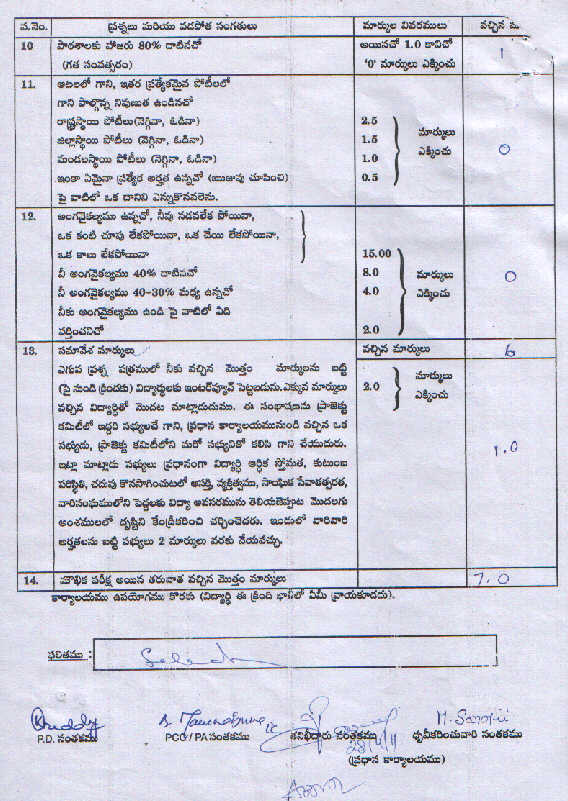 వ.నెం. ప్రశ్నలు మరియు వడపోత సంగతులు మార్కుల వివరములు వచ్చిన మ.
10 పాఠశాలకు హాజరు 80% దాటినచో అయినచో 1.0 కానిచో 1
(గత సంవత్సరం) '0' మార్కులు ఎక్కించు
11. ఆటలలో గాని, ఇతర ప్రత్యేకమైన పోటీలలో
గాని పాల్గొన్న నిపుణుత ఉండినచో
రాష్ట్రస్థాయి పోటీలు (నెగ్గినా, ఓడినా) 2.5 మార్కులు
జిల్లాస్థాయి పోటీలు (నెగ్గినా, ఓడినా) 1.5 ఎక్కించు 0
మండలస్థాయి పోటీలు (నెగ్గినా, ఓడినా) 1.0
ఇంకా ఏమైనా ప్రత్యేక అర్హత ఉన్నచో (ఋజువు చూపించి) 0.5
పై వాటిలో ఒక దానిని ఎన్నుకొనవలెను.
12. అంగవైకల్యము ఉన్నచో, నీవు నడవలేక పోయినా,
ఒక కంటి చూపు లేకపోయినా, ఒక చేయి లేకపోయినా,
ఒక కాలు లేకపోయినా 15.00
నీ అంగవైకల్యము 40% దాటినచో 8.0 మార్కులు 0
నీ అంగవైకల్యము 40-30% మధ్య ఉన్నచో 4.0 ఎక్కించు
నీకు అంగవైకల్యము ఉండి పై వాటిలో ఏది
వర్తించనిచో 2.0
13. సమావేశ మార్కులు వచ్చిన మార్కులు 6
ఎగువ ప్రశ్న పత్రములో నీకు వచ్చిన మొత్తం మార్కులను బట్టి 2.0 మార్కులు ఎక్కించు 1.0
(పై నుండి క్రిందకు) విద్యార్థులకు ఇంటర్వ్యూన్ పెట్టబడును. ఎక్కువ మార్కులు
వచ్చిన విద్యార్థితో మొదట మాట్లాడుదుము. ఈ సంభాషణను ప్రాజెక్టు
కమిటీలో ఇద్దరి సభ్యులచే గాని, ప్రధాన కార్యాలయమునుండి వచ్చిన ఒక
సభ్యుడు, ప్రాజెక్టు కమిటీలోని మరో సభ్యునితో కలిసి గాని చేయుదురు.
ఇట్లా మాట్లాడు సభ్యులు ప్రధానంగా విద్యార్థి ఆర్థిక స్తోమత, కుటుంబ
పరిస్థితి, చదువు కొనసాగించుటలో ఆసక్తి, వ్యక్తిత్వము, సాంఘిక సేవాతత్పరత,
వారిసంఘములోని పెద్దలకు విద్యా అవసరమును తెలియచెప్పుట మొదలగు
అంశములలో దృష్టిని కేంద్రీకరించి చర్చించెదరు. ఇందులో వారివారి
అర్హతలను బట్టి సభ్యులు 2 మార్కులు వరకు వేయవచ్చు.
14. మౌఖిక పరీక్ష అయిన తరువాత వచ్చిన మొత్తం మార్కులు 7.0
కార్యాలయము ఉపయోగము కొరకు (విద్యార్థి ఈ క్రింది ఖాళీలో ఏమీ వ్రాయకూడదు).
ఫలితము :
28/4/11
P.D. సంతకము PCC / PA సంతకము తనిఖీదారు సంతకము ధృవీకరించువారి సంతకము
(ప్రధాన కార్యాలయం)